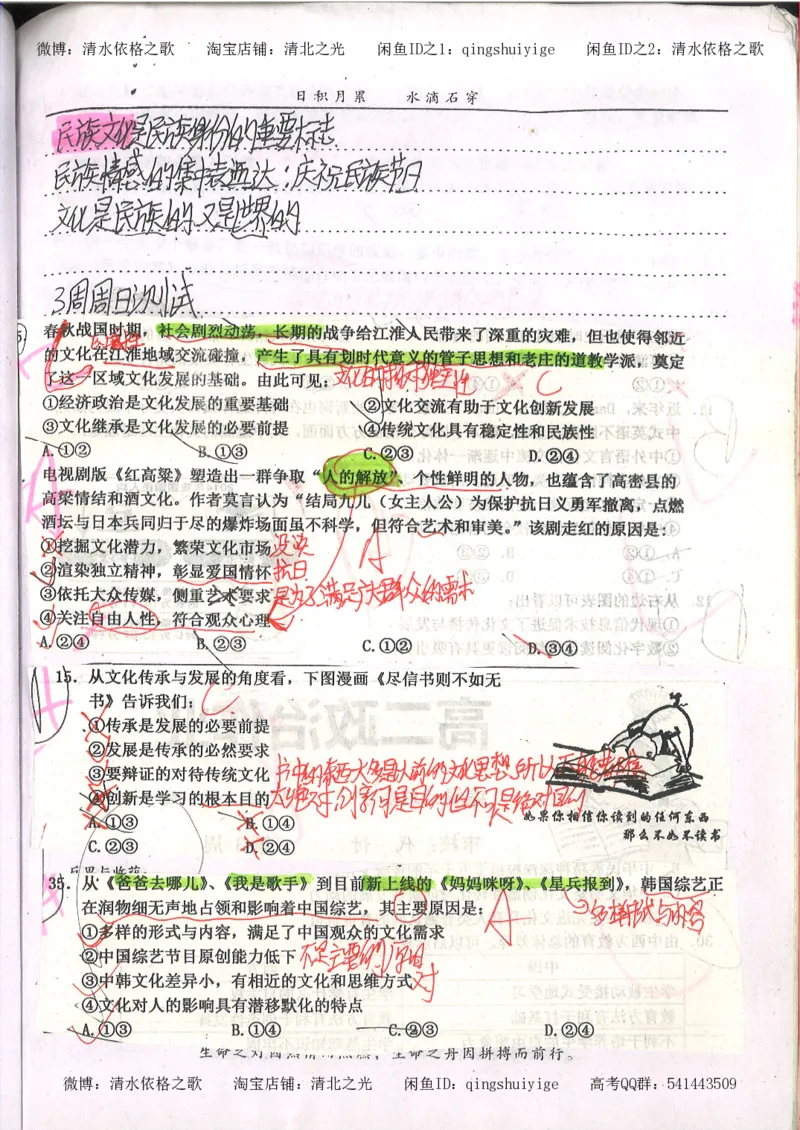 微博：清水依格之歌 淘宝店铺：清北之光 闲鱼ID之1：qingshuiyige 闲鱼ID之2：清水依格之歌
日积月累 水滴石穿
民族文化是民族身份的重要标志
民族情感的集中表达：庆祝民族节日
文化是民族的又是世界的
3周周日测试
春秋战国时期，社会剧烈动荡，长期的战争给江淮人民带来了深重的灾难，但也使得邻近
区域性
的文化在江淮地域交流碰撞，产生了具有划时代意义的管子思想和老庄的道教学派，奠定
了这一区域文化发展的基础。由此可见：
C
①经济政治是文化发展的重要基础 ②文化交流有助于文化创新发展
③文化继承是文化发展的必要前提 ④传统文化具有稳定性和民族性
A.①② B.①③ C.②③ D.②④
电视剧版《红高粱》塑造出一群争取“人的解放”、个性鲜明的人物，也蕴含了高密县的
高粱情结和酒文化。作者莫言认为“结局九儿（女主人公）为保护抗日义勇军撤离，点燃
酒坛与日本兵同归于尽的爆炸场面虽不科学，但符合艺术和审美。”该剧走红的原因是：
A
①挖掘文化潜力，繁荣文化市场 没突
②渲染独立精神，彰显爱国情怀 抗日
③依托大众传媒，侧重艺术要求 是为了满足广大群众的需求
④关注自由人性，符合观众心理
A.②④ B.②③ C.①② D.③④
15. 从文化传承与发展的角度看，下图漫画《尽信书则不如无
书》告诉我们： C
①传承是发展的必要前提
②发展是传承的必然要求
③要辩证的对待传统文化 书中的东西大多是以前的文化思想，所以不能尽信
④创新是学习的根本目的 太绝对，创新可是目的但不是绝对目的
A.①③ B.①④
C.②③ D.②④
如果你相信你读到的任何东西
那么不如不读书
35. 从《爸爸去哪儿》、《我是歌手》到目前新上线的《妈妈咪呀》、《星兵报到》，韩国综艺正
在润物细无声地占领和影响着中国综艺，其主要原因是： A 多种形式与内容
①多样的形式与内容，满足了中国观众的文化需求
②中国综艺节目原创能力低下 不是主要的原因
③中韩文化差异小，有相近的文化和思维方式 对
④文化对人的影响具有潜移默化的特点
A.①③ B.①④ C.②③ D.②④
生命之舟因拼搏而前行。
微博：清水依格之歌 淘宝店铺：清北之光 闲鱼ID：qingshuiyige 高考QQ群：541443509